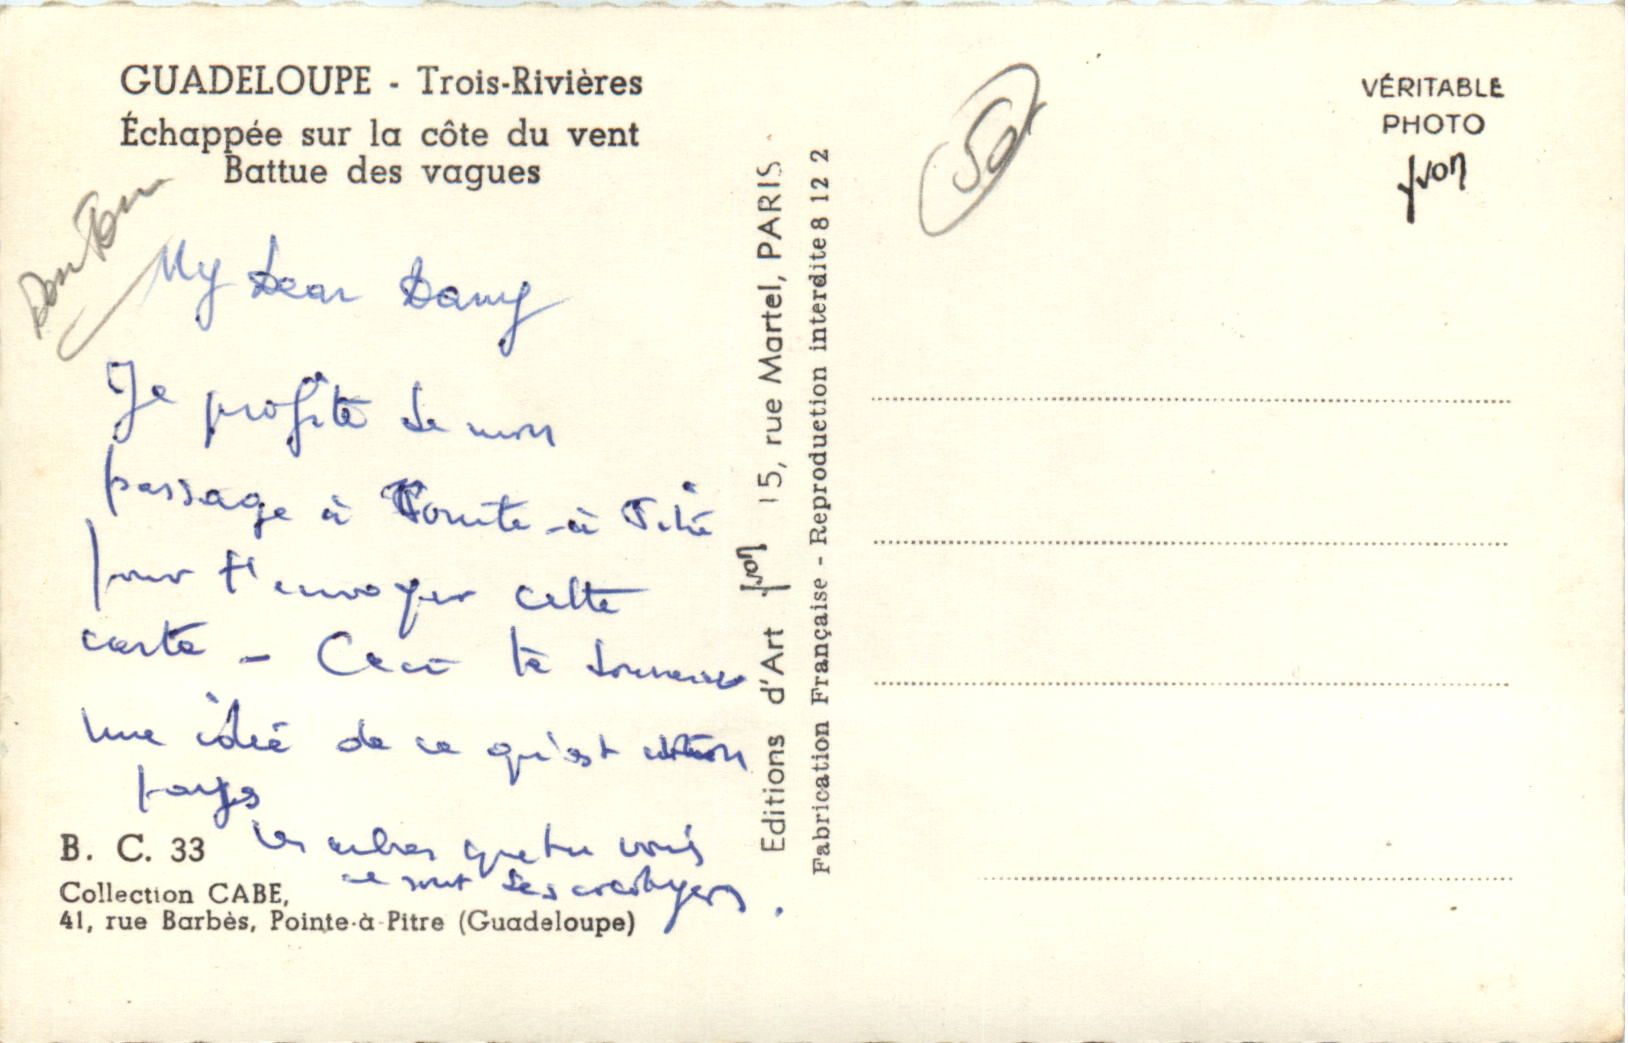 GUADELOUPE - Trois-Rivières
Échappée sur la côte du vent
Battue des vagues
Dom Tom
My Dear Dany
Je profite de mon
passage à Pointe-à-Pitre
pour t'envoyer cette
carte - Ceci te donnera
une idée de ce qu'est mon
pays
Les arbres que tu vois
ce sont des cocotiers.
B. C. 33
Collection CABE,
41, rue Barbès, Pointe-à-Pitre (Guadeloupe)
Editions d'Art yvon 15, rue Martel, PARIS
Fabrication Française - Reproduction interdite 8 12 2
VÉRITABLE
PHOTO
yvon